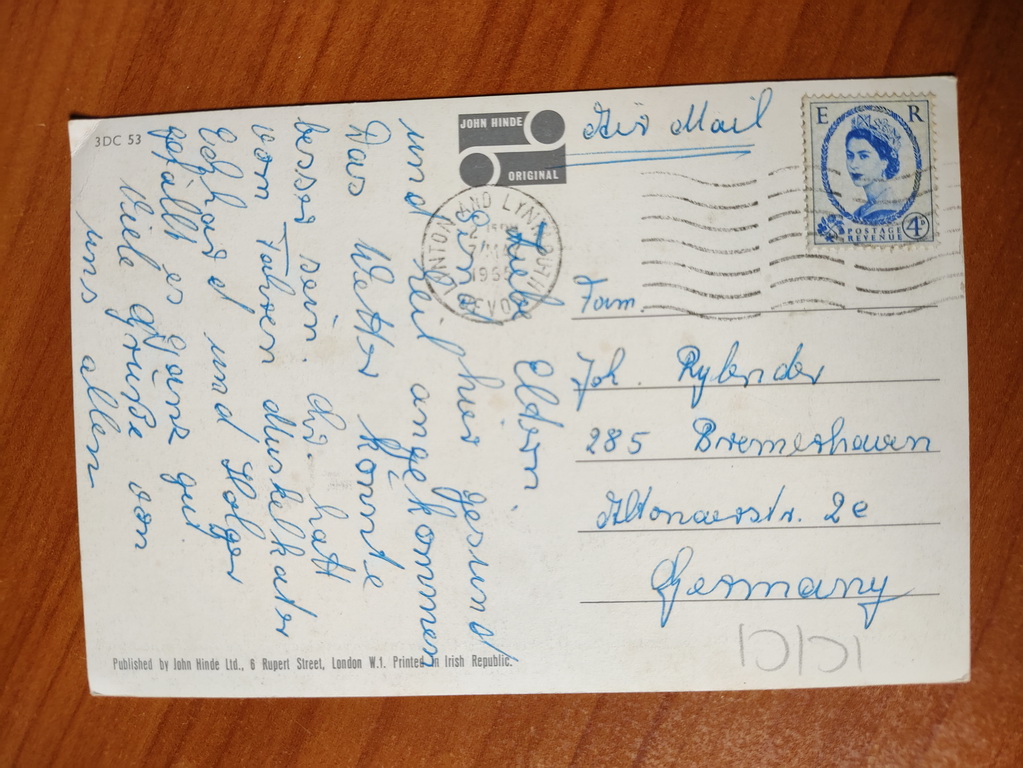 3DC 53
JOHN HINDE
ORIGINAL
Air Mail
E R
POSTAGE
REVENUE
4D
LYNTON AND LYNMOUTH
1965
DEVON
Liebe Eltern
Sind hier gesund
und heil angekommen
Das Wetter konnte
besser sein. hatt
vom Fahren Muskelkater
und Holger
gefällt es ganz gut
Viele Grüße von
uns allen
Fam.
Joh. Rylender
285 Bremerhaven
Altonaerstr. 2e
Germany
Published by John Hinde Ltd., 6 Rupert Street, London W.1. Printed in Irish Republic.